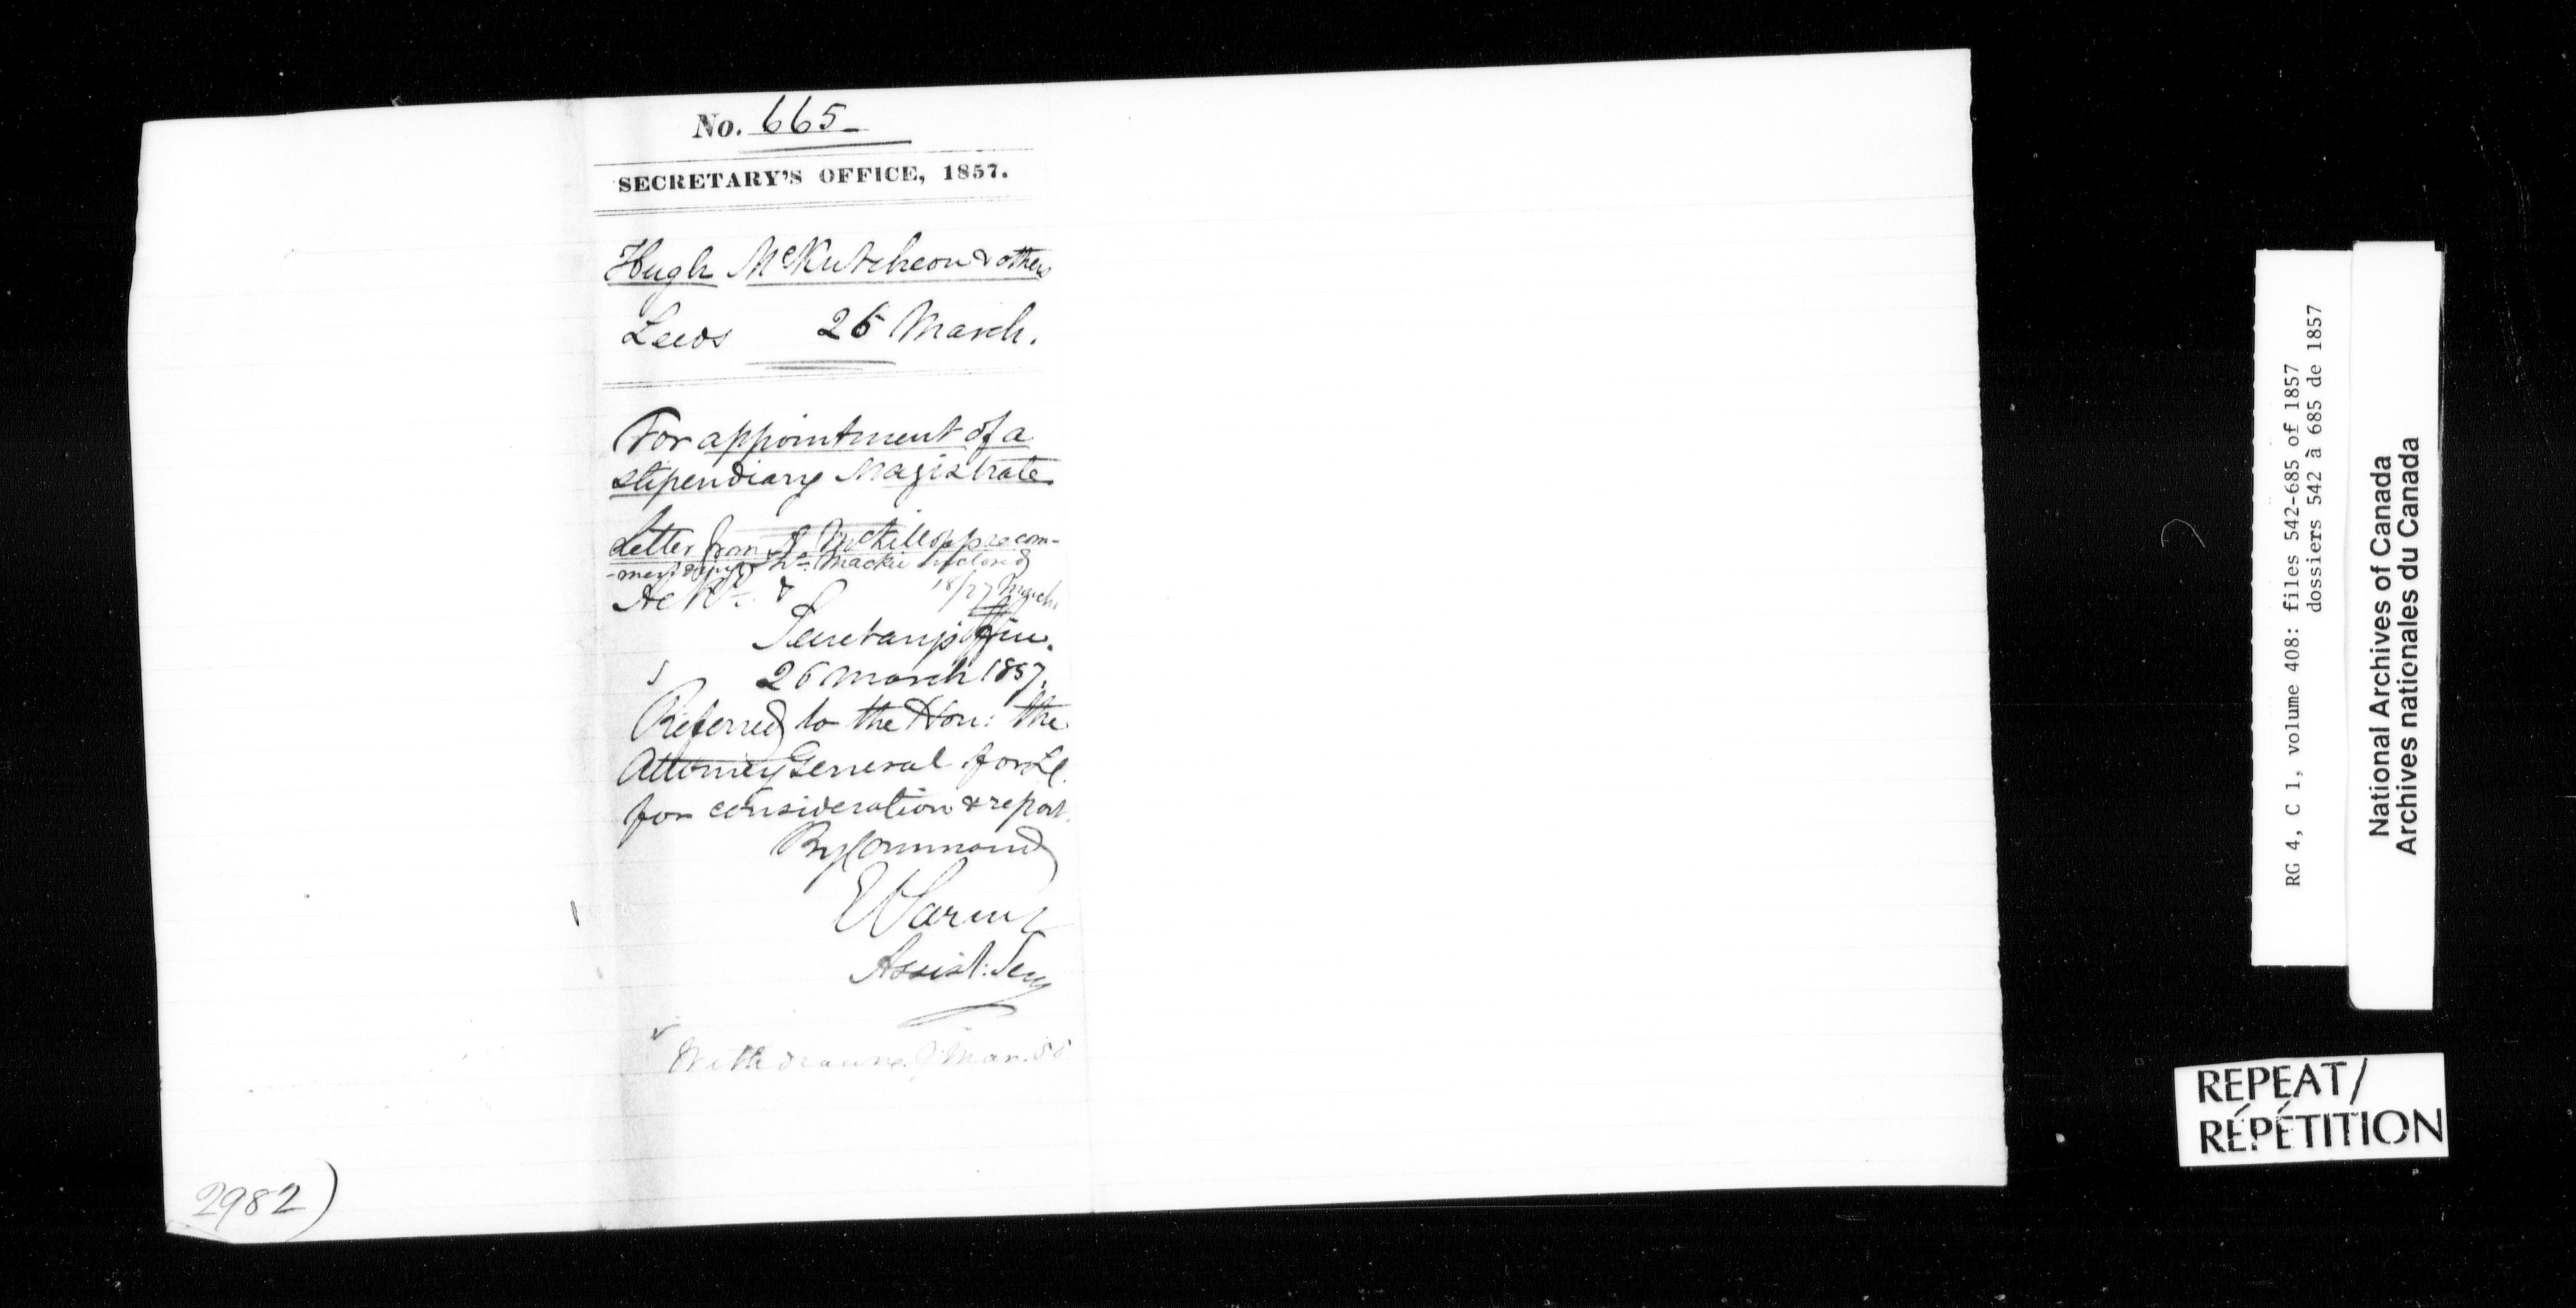 No. 665
SECRETARY'S OFFICE, 1857.
Hugh McKutcheon & others
Leeds 25 March.
For appointment of a
stipendiary Magistrate
Letter from A McKillop recom-
-mending Wm Mackie inclosed
18/27 March
Secretary's Office.
26 March 1857.
Referred to the Hon: the
Attorney General for L.C.
for consideration & report.
By Command
Assist: Secy
Withdrawn. 9 Mar. 58
2982)
RG 4, C 1, volume 408: files 542-685 of 1857
dossiers 542 à 685 de 1857
National Archives of Canada
Archives nationales du Canada
REPEAT/
RÉPÉTITION